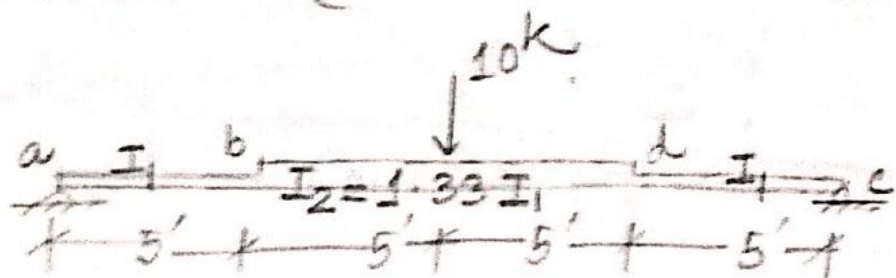 10k
a I1 b I2 = 1.33 I1 d I1 c
5′ 5′ 5′ 5′